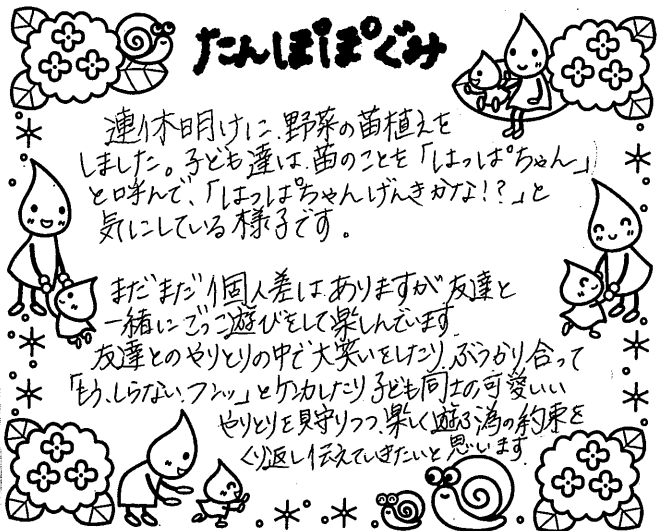 たんぽぽぐみ
連休明けに、野菜の苗植えを
しました。子ども達は、苗のことを「はっぱちゃん」
と呼んで、「はっぱちゃんげんきかな!?」と
気にしている様子です。
まだまだ個人差はありますが友達と
一緒にごっこ遊びをして楽しんでいます。
友達とのやりとりの中で大笑いをしたり、ぶつかり合って
「もう、しらない、フンッ」とケンカしたり子ども同士の可愛いい
やりとりを見守りつつ、楽しく遊ぶ為の約束を
くり返し伝えていきたいと思います。